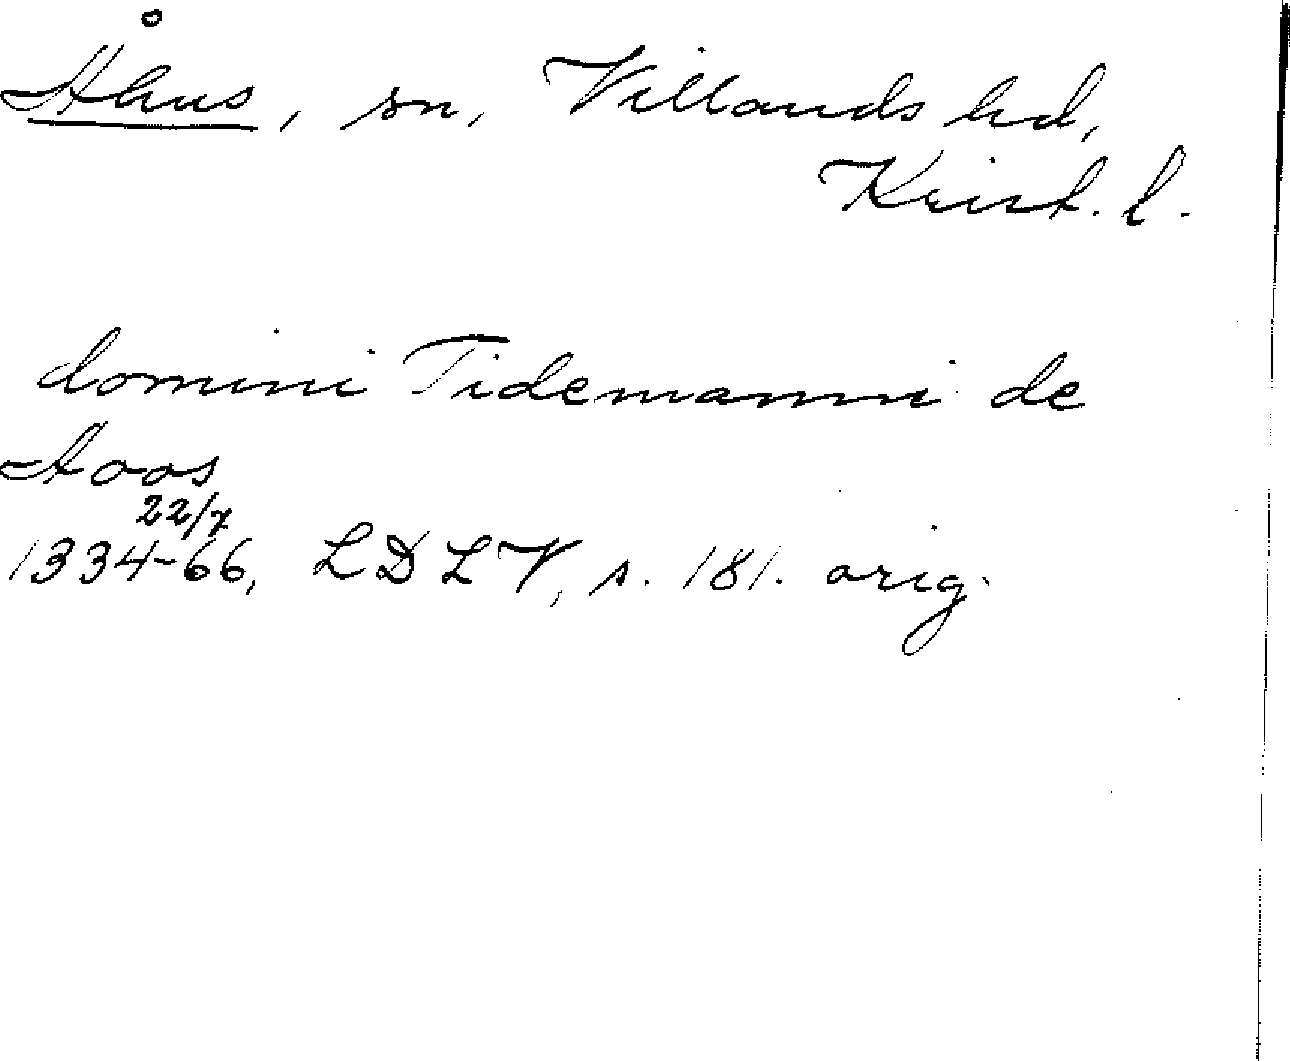 Åhus, sn, Villands hd,
Krist. l.
domini Tidemanni de
Aoos
22/7
1334-66, LDLV, s. 181. orig.